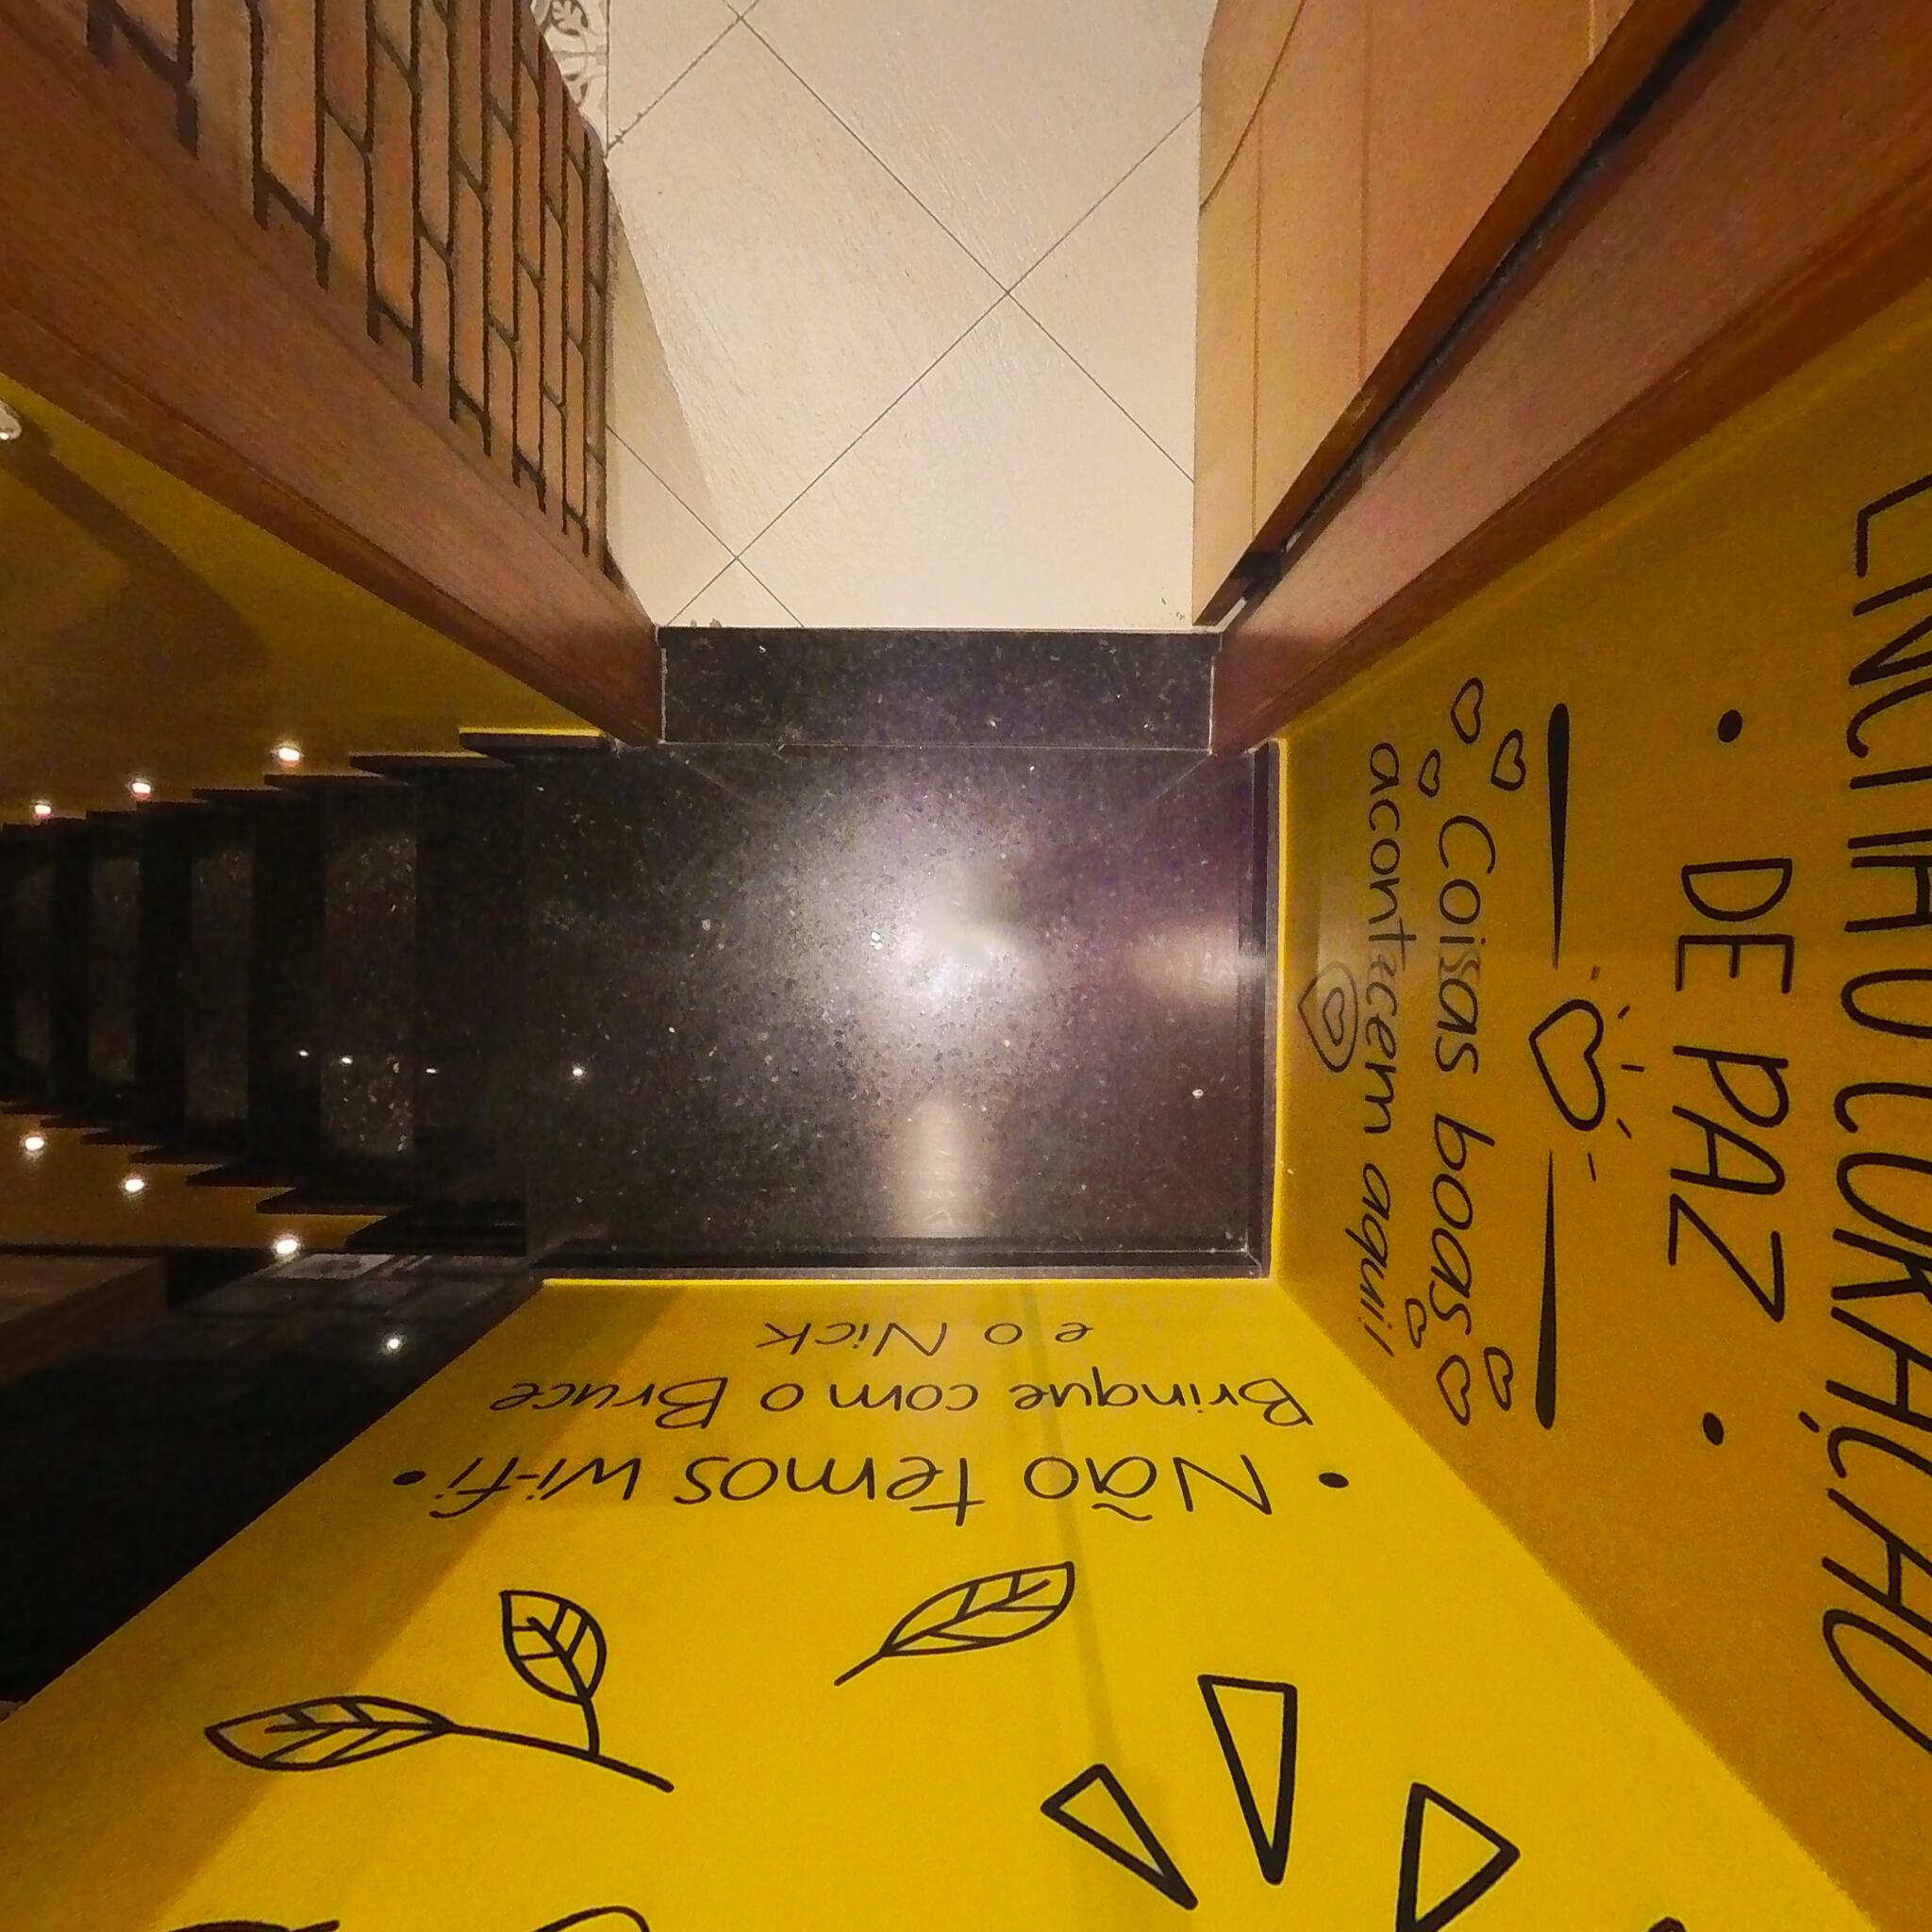 ENCHA O CORAÇÃO
• DE PAZ •
Coisas boas
acontecem aqui!
• Não temos wi-fi •
Brinque com o Bruce
e o Nick